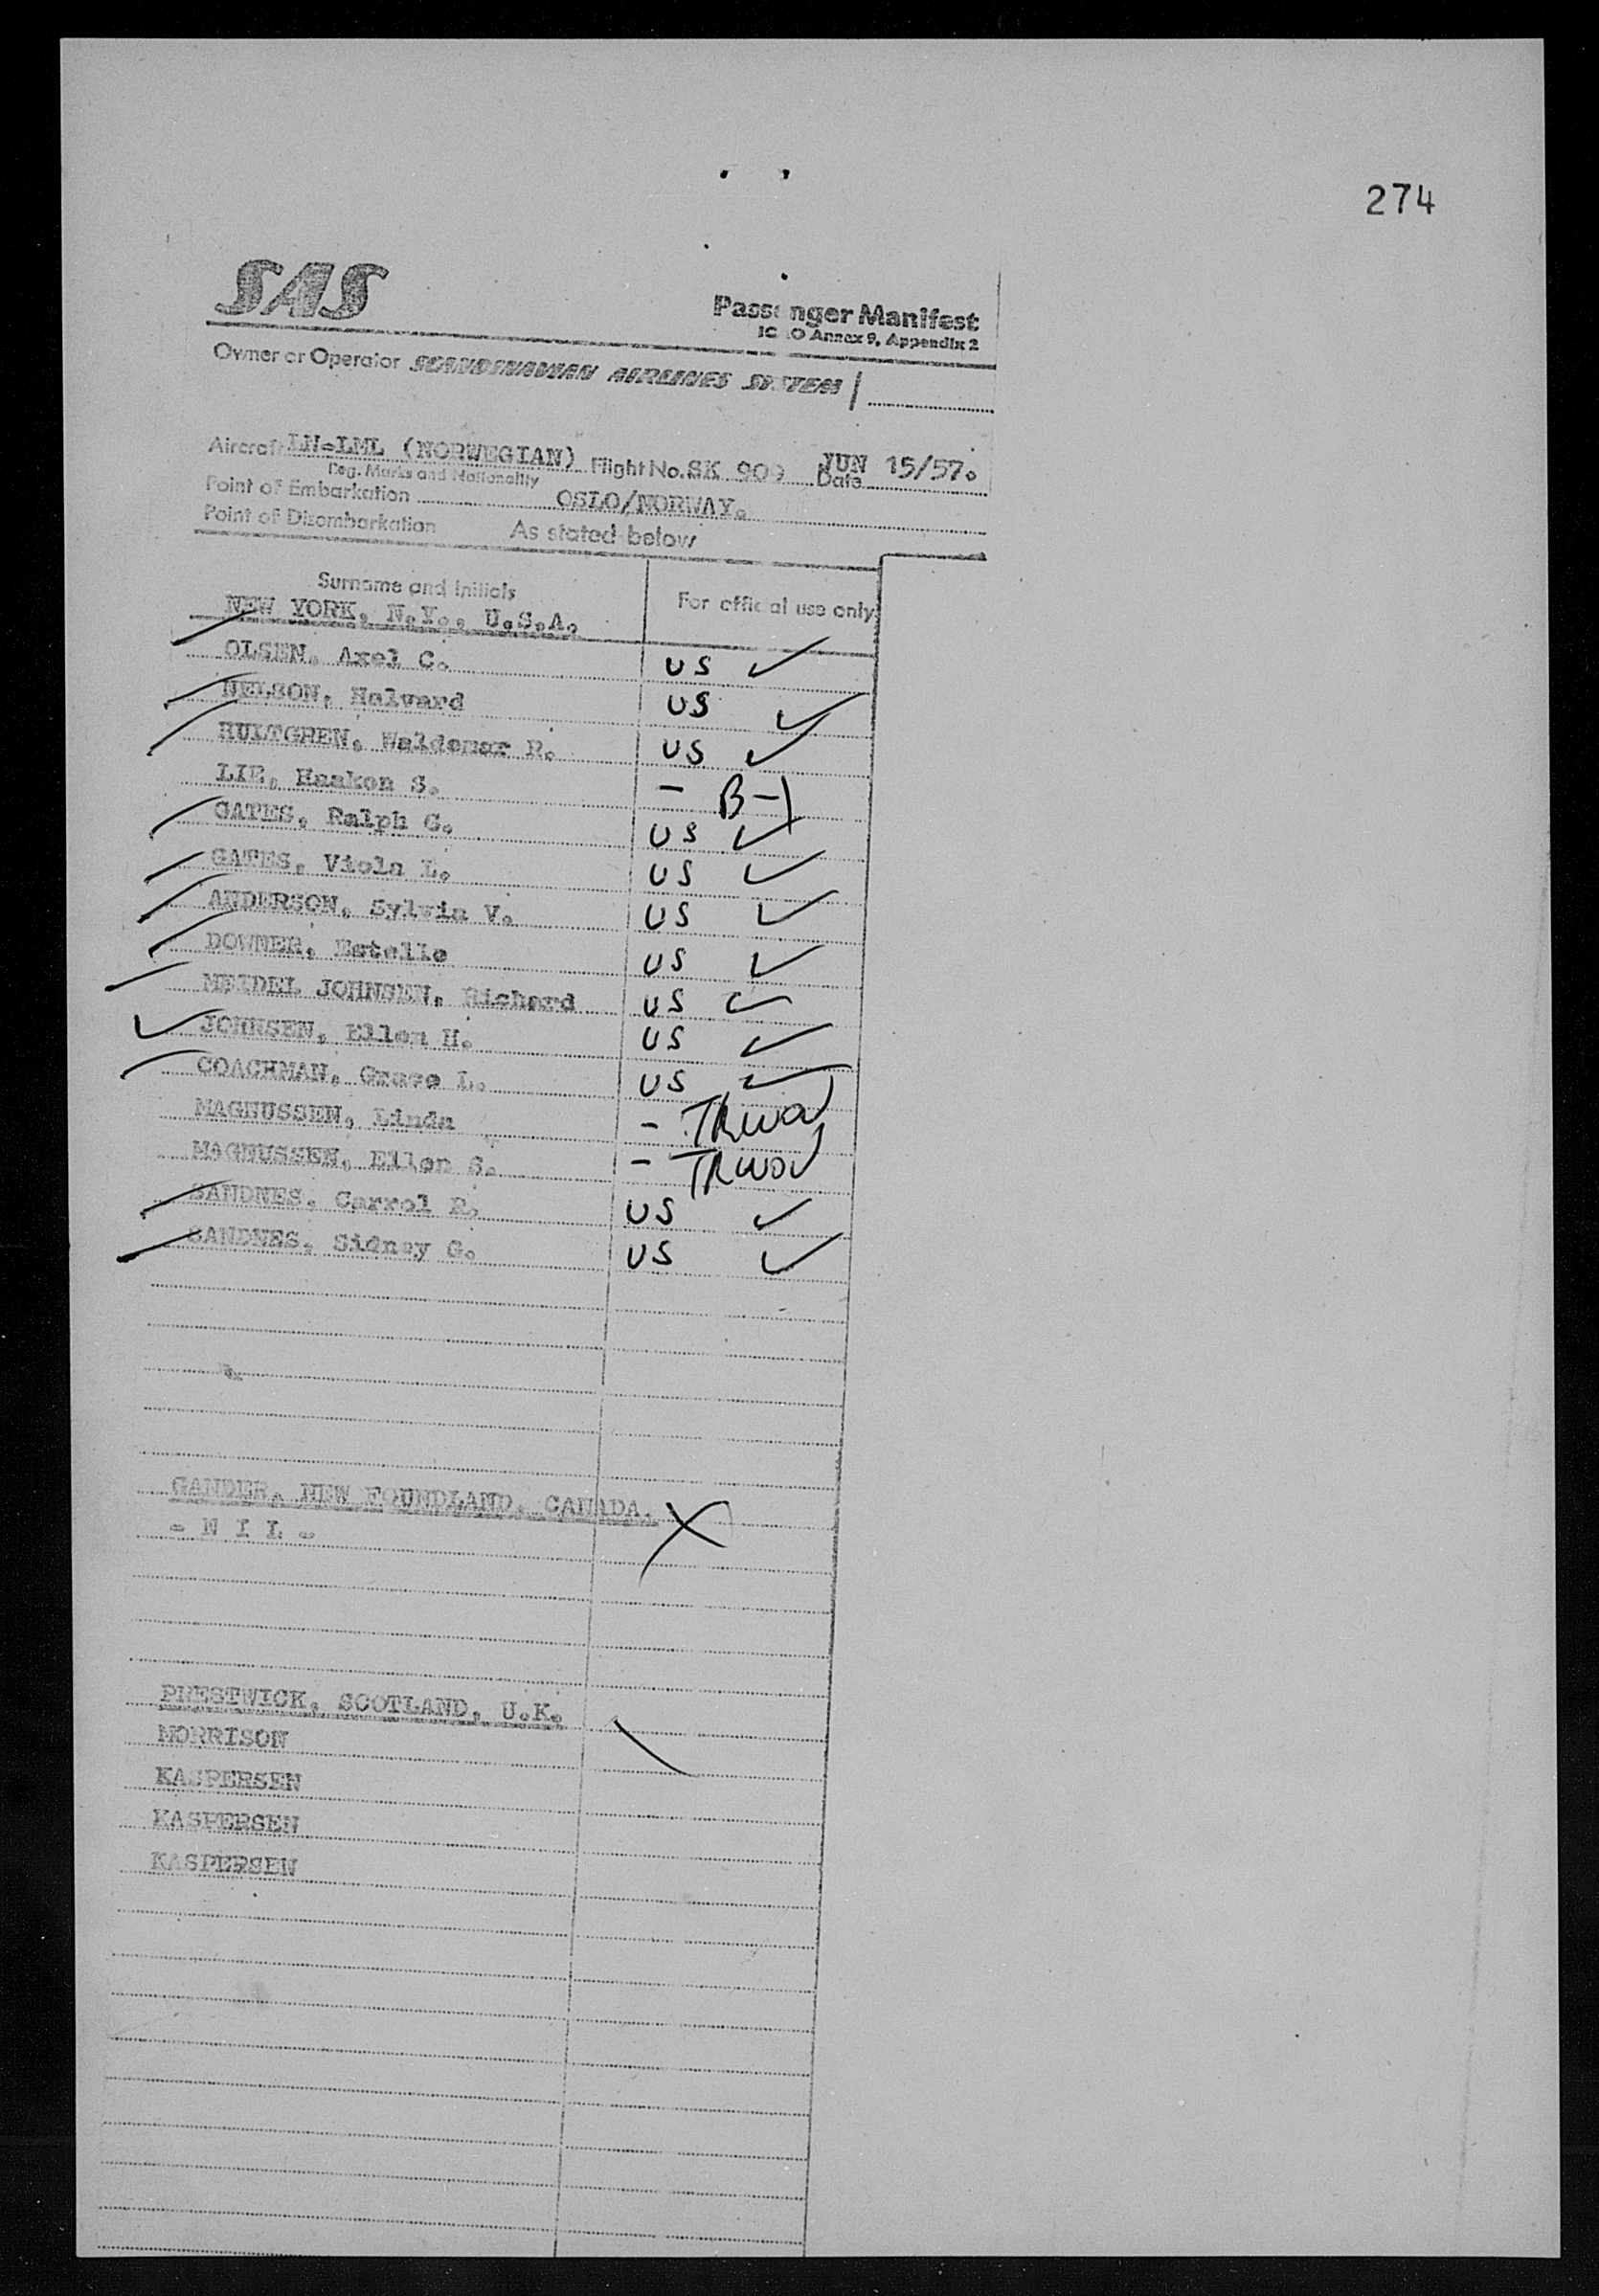 274
SAS
Passenger Manifest
ICAO Annex 9, Appendix 2
Owner or Operator SCANDINAVIAN AIRLINES SYSTEM
Aircraft LN-LML (NORWEGIAN) Flight No. SK 909 JUN 15/57.
Reg. Marks and Nationality Date
Point of Embarkation OSLO/NORWAY.
Point of Disembarkation As stated below
Surname and initials For official use only
NEW YORK, N.Y., U.S.A.
OLSEN, Axel C. US ✓
NELSON, Halvard US ✓
HULTGREN, Waldemar R. US ✓
LIE, Haakon S. - B-1
GATES, Ralph G. US ✓
GATES, Viola L. US ✓
ANDERSON, Sylvia V. US ✓
DOWNER, Estelle US ✓
MEIDEL JOHNSEN, Richard US ✓
JOHNSEN, Ellen H. US ✓
COACHMAN, Grace L. US ✓
MAGNUSSEN, Linda - TRWOV
MAGNUSSEN, Ellen S. - TRWOV
SANDNES, Carrol R. US ✓
SANDNES, Sidney G. US ✓
GANDER, NEW FOUNDLAND, CANADA. X
- N I L -
PRESTWICK, SCOTLAND, U.K.
MORRISON
KASPERSEN
KASPERSEN
KASPERSEN